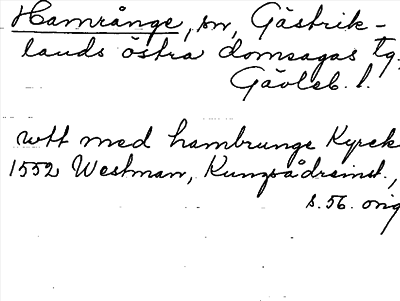 Hamrånge, sn, Gästrik-
lands östra domsagas tg.
Gävleb. l.
wtt med hambrunge Kyrck
1552 Westman, Kungsådreinst.,
s. 56. orig